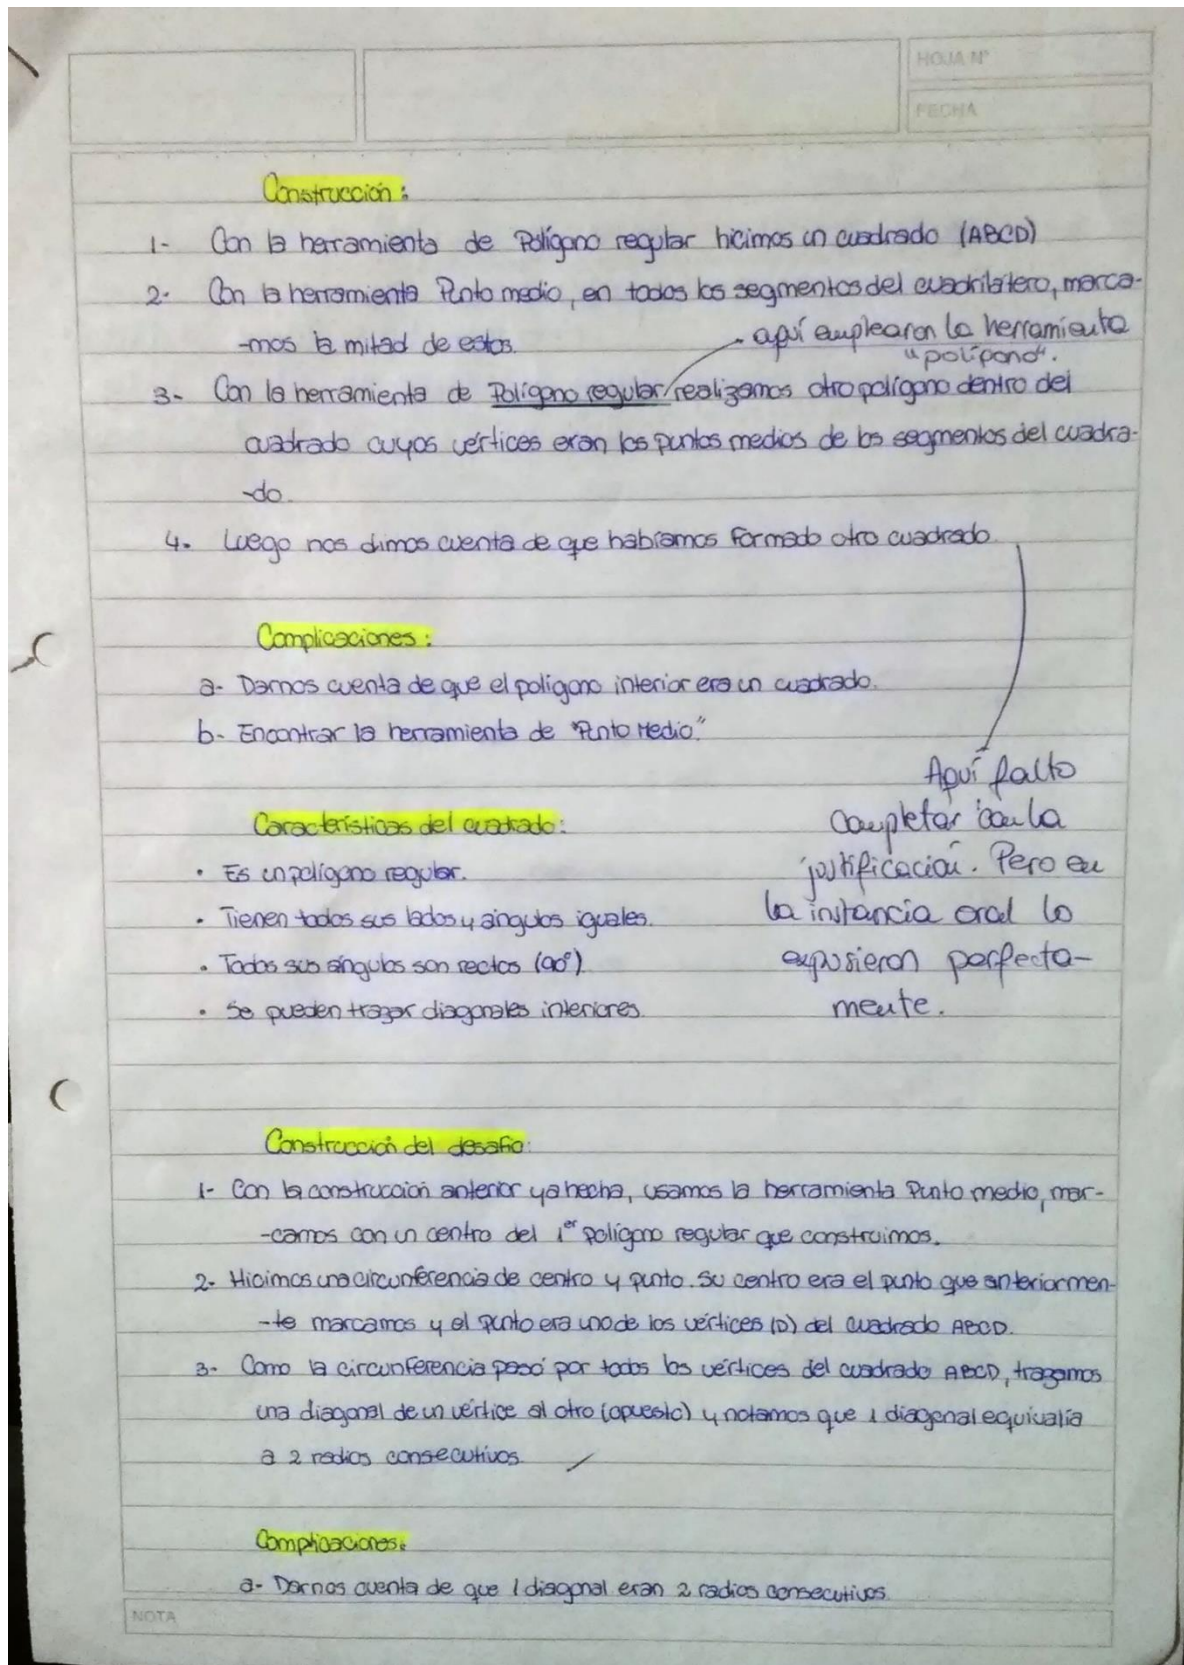 HOJA N°
FECHA
Construcción:
1- Con la herramienta de Polígono regular hicimos un cuadrado (ABCD)
2- Con la herramienta Punto medio, en todos los segmentos del cuadrilátero, marca-
-mos la mitad de estos.
aquí emplearon la herramienta
"polígono".
3- Con la herramienta de Polígono regular realizamos otro polígono dentro del
cuadrado cuyos vértices eran los puntos medios de los segmentos del cuadra-
-do.
4- Luego nos dimos cuenta de que habíamos formado otro cuadrado.
Complicaciones:
a- Darnos cuenta de que el polígono interior era un cuadrado.
b- Encontrar la herramienta de "Punto Medio."
Aquí falto
completar con la
justificación. Pero en
la instancia oral lo
expusieron perfecta-
mente.
Características del cuadrado:
• Es un polígono regular.
• Tienen todos sus lados y ángulos iguales.
• Todos sus ángulos son rectos (90°).
• Se pueden trazar diagonales interiores.
Construcción del desafío:
1- Con la construcción anterior ya hecha, usamos la herramienta Punto medio, mar-
-camos con un centro del 1er polígono regular que construimos.
2- Hicimos una circunferencia de centro y punto. Su centro era el punto que anteriormen-
-te marcamos y el punto era uno de los vértices (D) del cuadrado ABCD.
3- Como la circunferencia pasó por todos los vértices del cuadrado ABCD, trazamos
una diagonal de un vértice al otro (opuesto) y notamos que 1 diagonal equivalía
a 2 radios consecutivos.
Complicaciones:
a- Darnos cuenta de que 1 diagonal eran 2 radios consecutivos.
NOTA